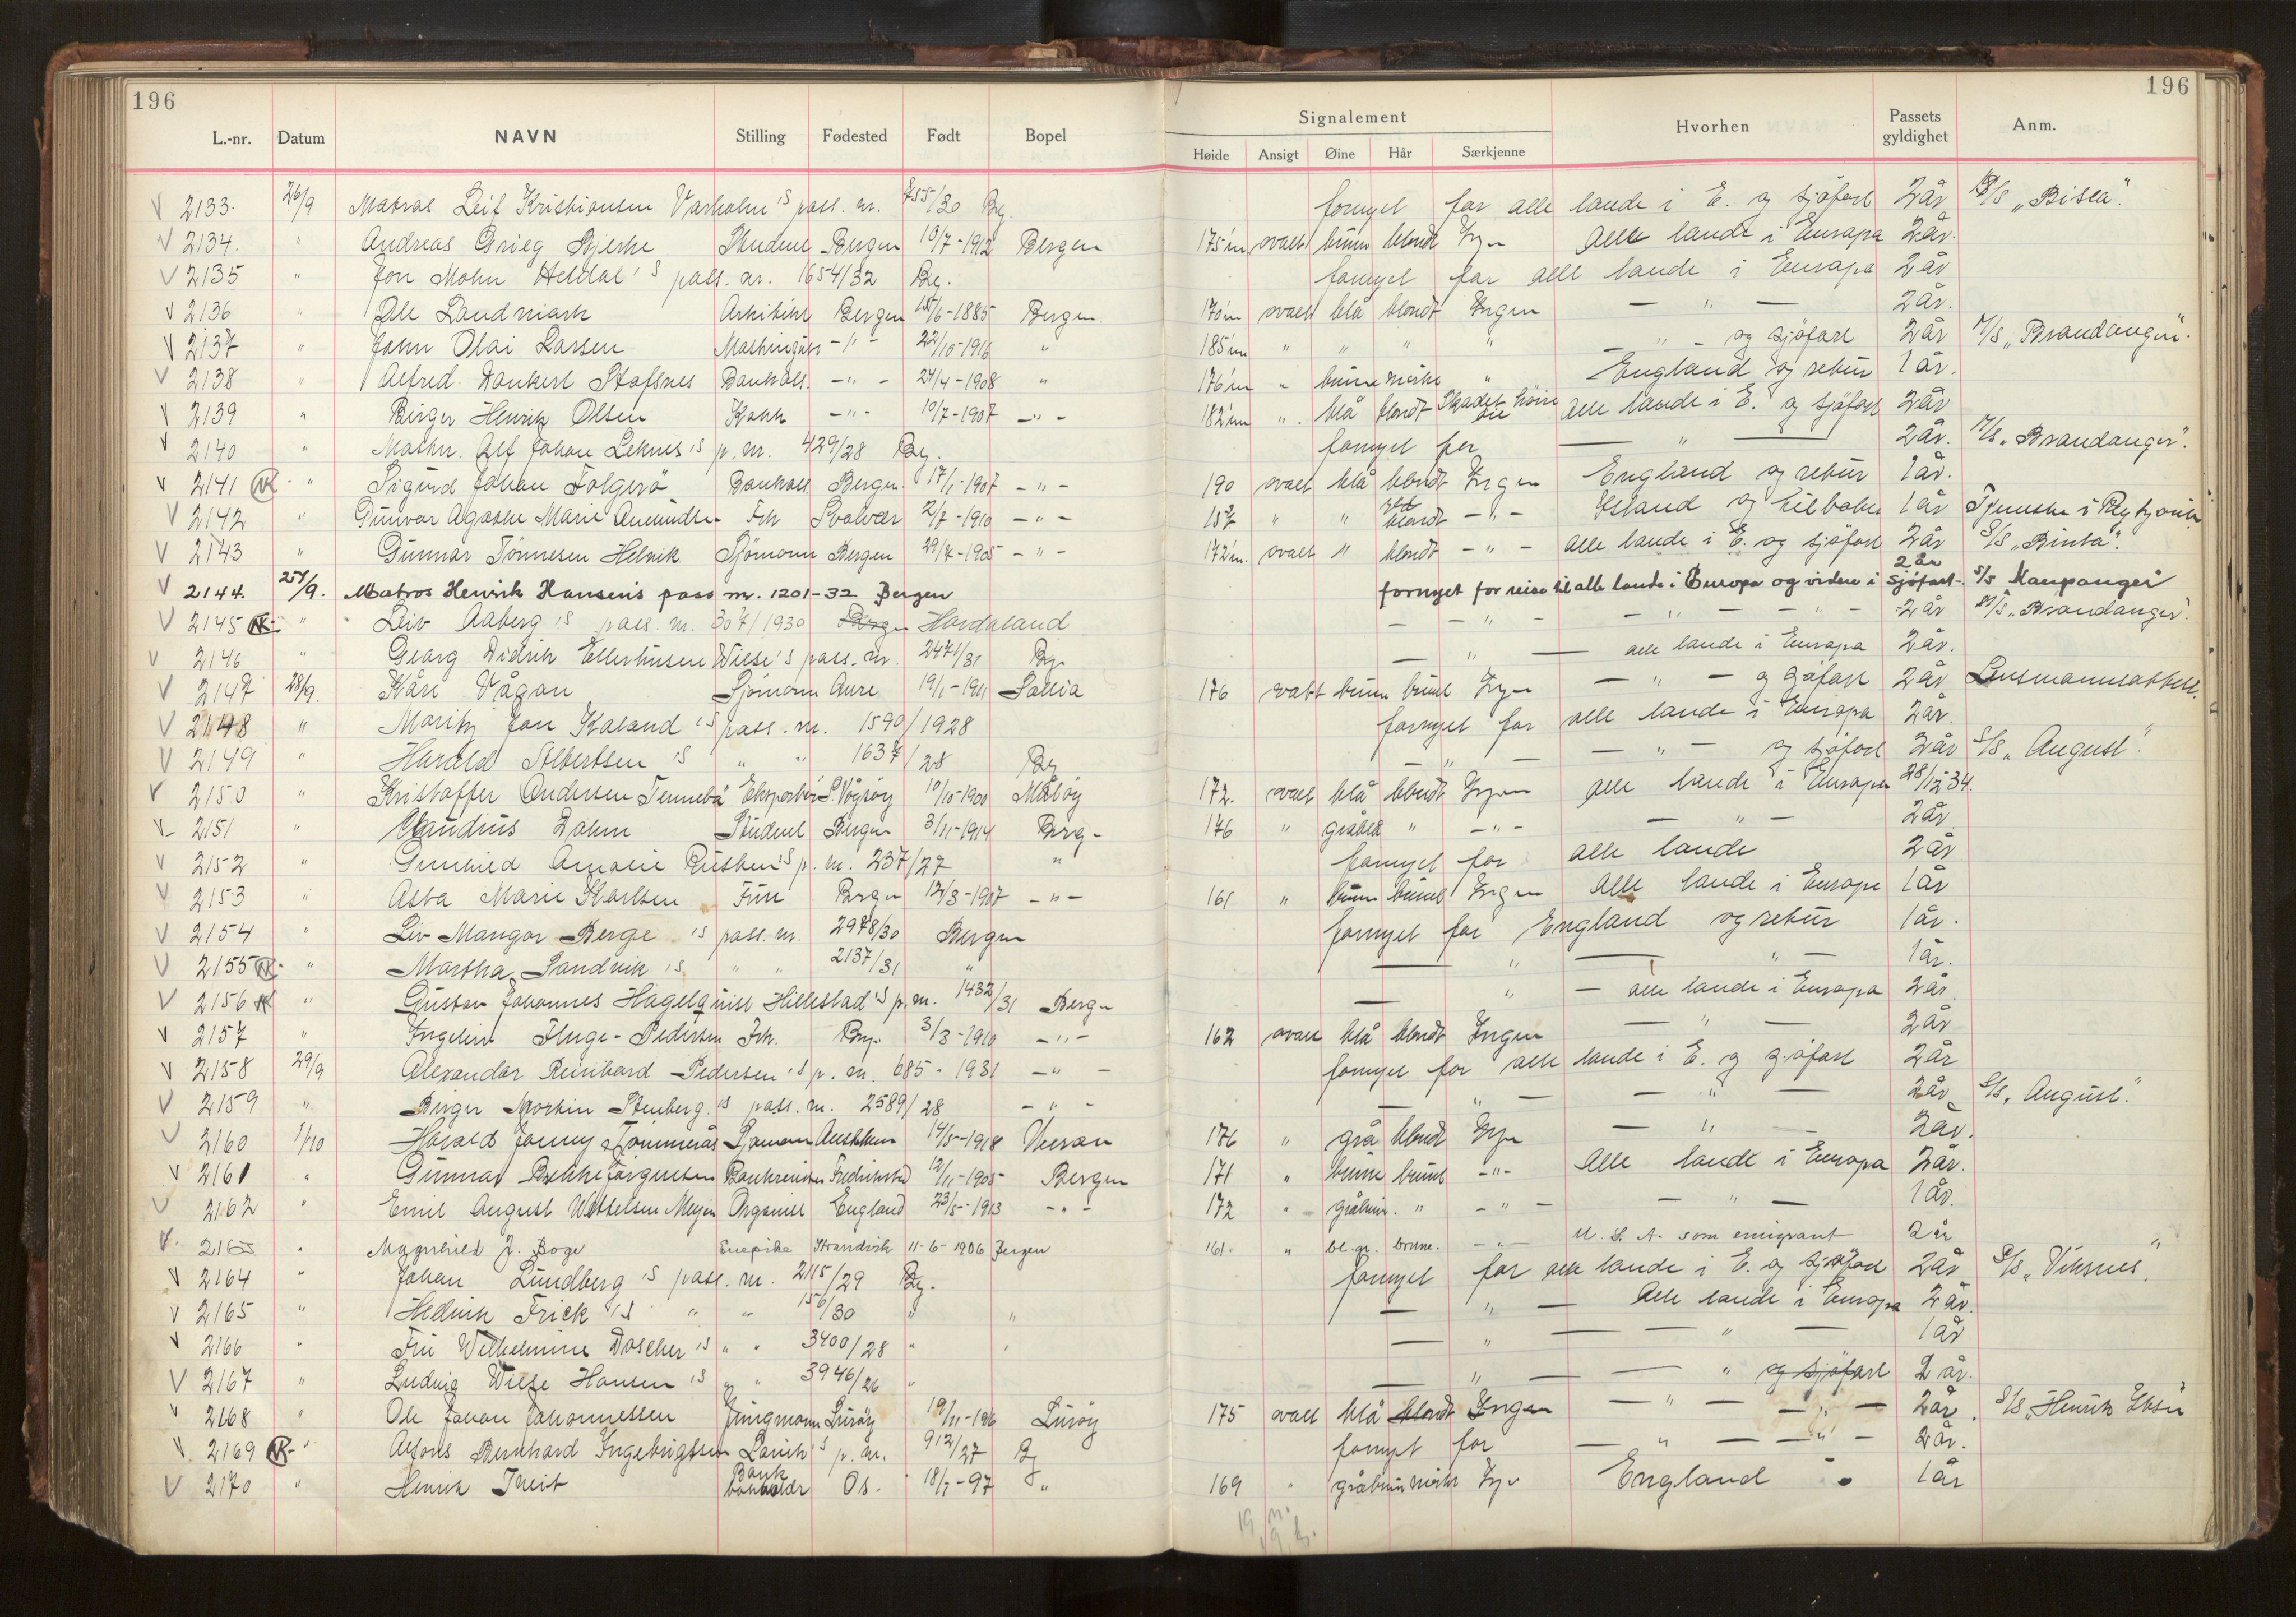 196
196
L.-nr. Datum NAVN Stilling Fødested Født Bopel Signalement Hvorhen Passets gyldighet Anm.
Høide Ansigt Øine Hår Særkjenne
V 2133. 26/9 Matros Leif Kristiansen Varholm's pass. nr. 755/30 Bg. fornyet for alle lande i E. og sjøfart 2 år "Bisca".
V 2134. " Andreas Grieg Bjerke Student Bergen 13/7-1912 Bergen 175 ovalt brune blondt Ingen Alle lande i Europa 2 år.
V 2135 " Jon Mohn Heldal's pass. nr. 1654/32 Bg. fornyet for alle lande i Europa 2 år
V 2136 " Ole Landmark Arkitekt Bergen 15/6-1885 Bergen. 170 ovalt blå blondt Ingen — " — 2 år.
V 2137 " John Olai Larsen -"- 22/10-1916 " 185 " " " " — " - og sjøfart 2 år M/S "Brandanger".
V 2138 " Alfred Dankert Stafsnes -"- 24/4-1908 " 176 " brune mørke " England og retur 1 år.
V 2139 " Birger Henrik Olsen Kokk -"- 10/7-1907 -"- 182 " blå blondt Skadet høire øie Alle lande i E. og sjøfart 2 år
V 2140 " Alf Johan Leknes's p. nr. 429/28 Bg. fornyet for — " — 2 år. M/S "Brandanger".
V 2141 NK " Sigurd Johan Folgerø Bergen 17/1-1907 -"- 190 ovalt blå blondt Ingen England og retur 1 år.
V 2142 " Gunvor Agathe Marie Amundsen Frk Svolvær 2/7-1910 -"- 15 " " rød blondt -"- Island og tilbake 1 år Tjeneste i
V 2143 " Gunnar Tønnesen Helvik Sjømann Bergen 29/7-1905 -"- 172 ovalt " blondt -"- alle lande i E. og sjøfart 2 år S/S "Binta".
V 2144. 27/9. Matros Henrik Hansens pass nr. 1201-32 Bergen fornyet for reise til alle lande i Europa og videre i sjøfart 2 år S/S Kaupanger
V 2145 NK " Leiv Aaberg's pass. nr. 307/1930 Bergen Hordaland — " — — " — 2 år M/S "Brandanger".
V 2146 " Georg Didrik Ellerhusen Wiese's pass. nr. 2471/31 Bg. — " — alle lande i Europa 2 år.
V 2147 28/9. Kåre Vågan Sjømann Aure 19/1-1911 176 ovalt brune brunt Ingen — " — og sjøfart 2 år Lensmannsattest.
V 2148 " Moritz Jon Kaland's pass. nr. 1590/1928 fornyet for alle lande i Europa 2 år.
V 2149 " Harald Albertsen's " " 1637/28 Bg — " — — " — og sjøfart 2 år S/S "August".
V 2150 " Kristoffer Andersen Tennebø S. Vågsøy 10/10-1900 Måløy 172. ovalt blå blondt Ingen alle lande i Europa 28/12 34.
V 2151 " Claudius Dahm Student Bergen 3/11-1914 Berg- 176 " gråblå " -"- — " — 2 år
V 2152 " Gunhild Amalie p. nr. 237/27 " fornyet for alle lande 2 år
V 2153 " Asta Marie Karlsen Fru Bergen 12/3-1907 -"- 161 " brune brunt Ingen Alle lande i Europa 1 år
V 2154 " Liv Mangor Berge's pass. nr. 2978/30 Bergen fornyet for England og retur 1 år.
V 2155 NK " Martha Sandvik's " " 2137/31 " — " — — " — 1 år.
V 2156 NK " Gustav Johannes Hagelquist Hillestad's p. nr. 1432/31 Bergen — " — alle lande i Europa 2 år.
V 2157 " Ingelin Fluge-Pedersen Frk. Bg. 3/3-1910 -"- 162 ovalt blå blondt Ingen — " — 2 år
V 2158 29/9 Alexander Reinhard Pedersen's p. nr. 685-1931 -"- fornyet for alle lande i E. og sjøfart 2 år
V 2159 " Birger Martin Stenberg's pass. nr. 2589/28 -"- — " — — " — 2 år S/S "August".
V 2160 1/10 Harald Jonny Sjømann 14/5-1918 176 " grå blondt Ingen — " — 2 år.
V 2161 " Gunnar Bekke Jørgensen Fredrikstad 12/11-1905 Bergen 171 " brune brunt -"- Alle lande i Europa 2 år.
V 2162 " Emil August Wettelsen Meyer Organist England 23/5-1913 -"- 172 " gråbrun. " -"- — " — 1 år.
V. 2163 " Magnhild J. Boge Strandvik 11-6-1906 Bergen 161. " bl.gr. brune. -"- U.S.A. som emigrant 2 år
V 2164 " Johan Lundberg's pass. nr. 2115/29 Bg. fornyet for alle lande i E. og sjøfart 2 år S/S "Viksnes".
V 2165 " Hedvik Frick's " " 156/30 " " — " — Alle lande i Europa 2 år.
V 2166 " Fru Wilhelmine Doscher's " " 3400/28 " — " — — " — 1 år
V 2167 " Ludvig Wiese Hansen's " " 3946/26 " — " — — " og sjøfart 2 år.
V 2168 " Ole Johan Johannessen Jungmann Lurøy 19/11-1916 Lurøy 175 ovalt blå blondt Ingen — " — — " — 2 år. S/S "Henrik Ibsen
V 2169 NK " Alfons Bernhard Ingebrigtsen p. nr. 912/27 Bg fornyet for — " — — " — 2 år.
V 2170 " Henrik Bank Os. 18/7-97 " 169 " gråbrun mørkt Ingen England " 1 år